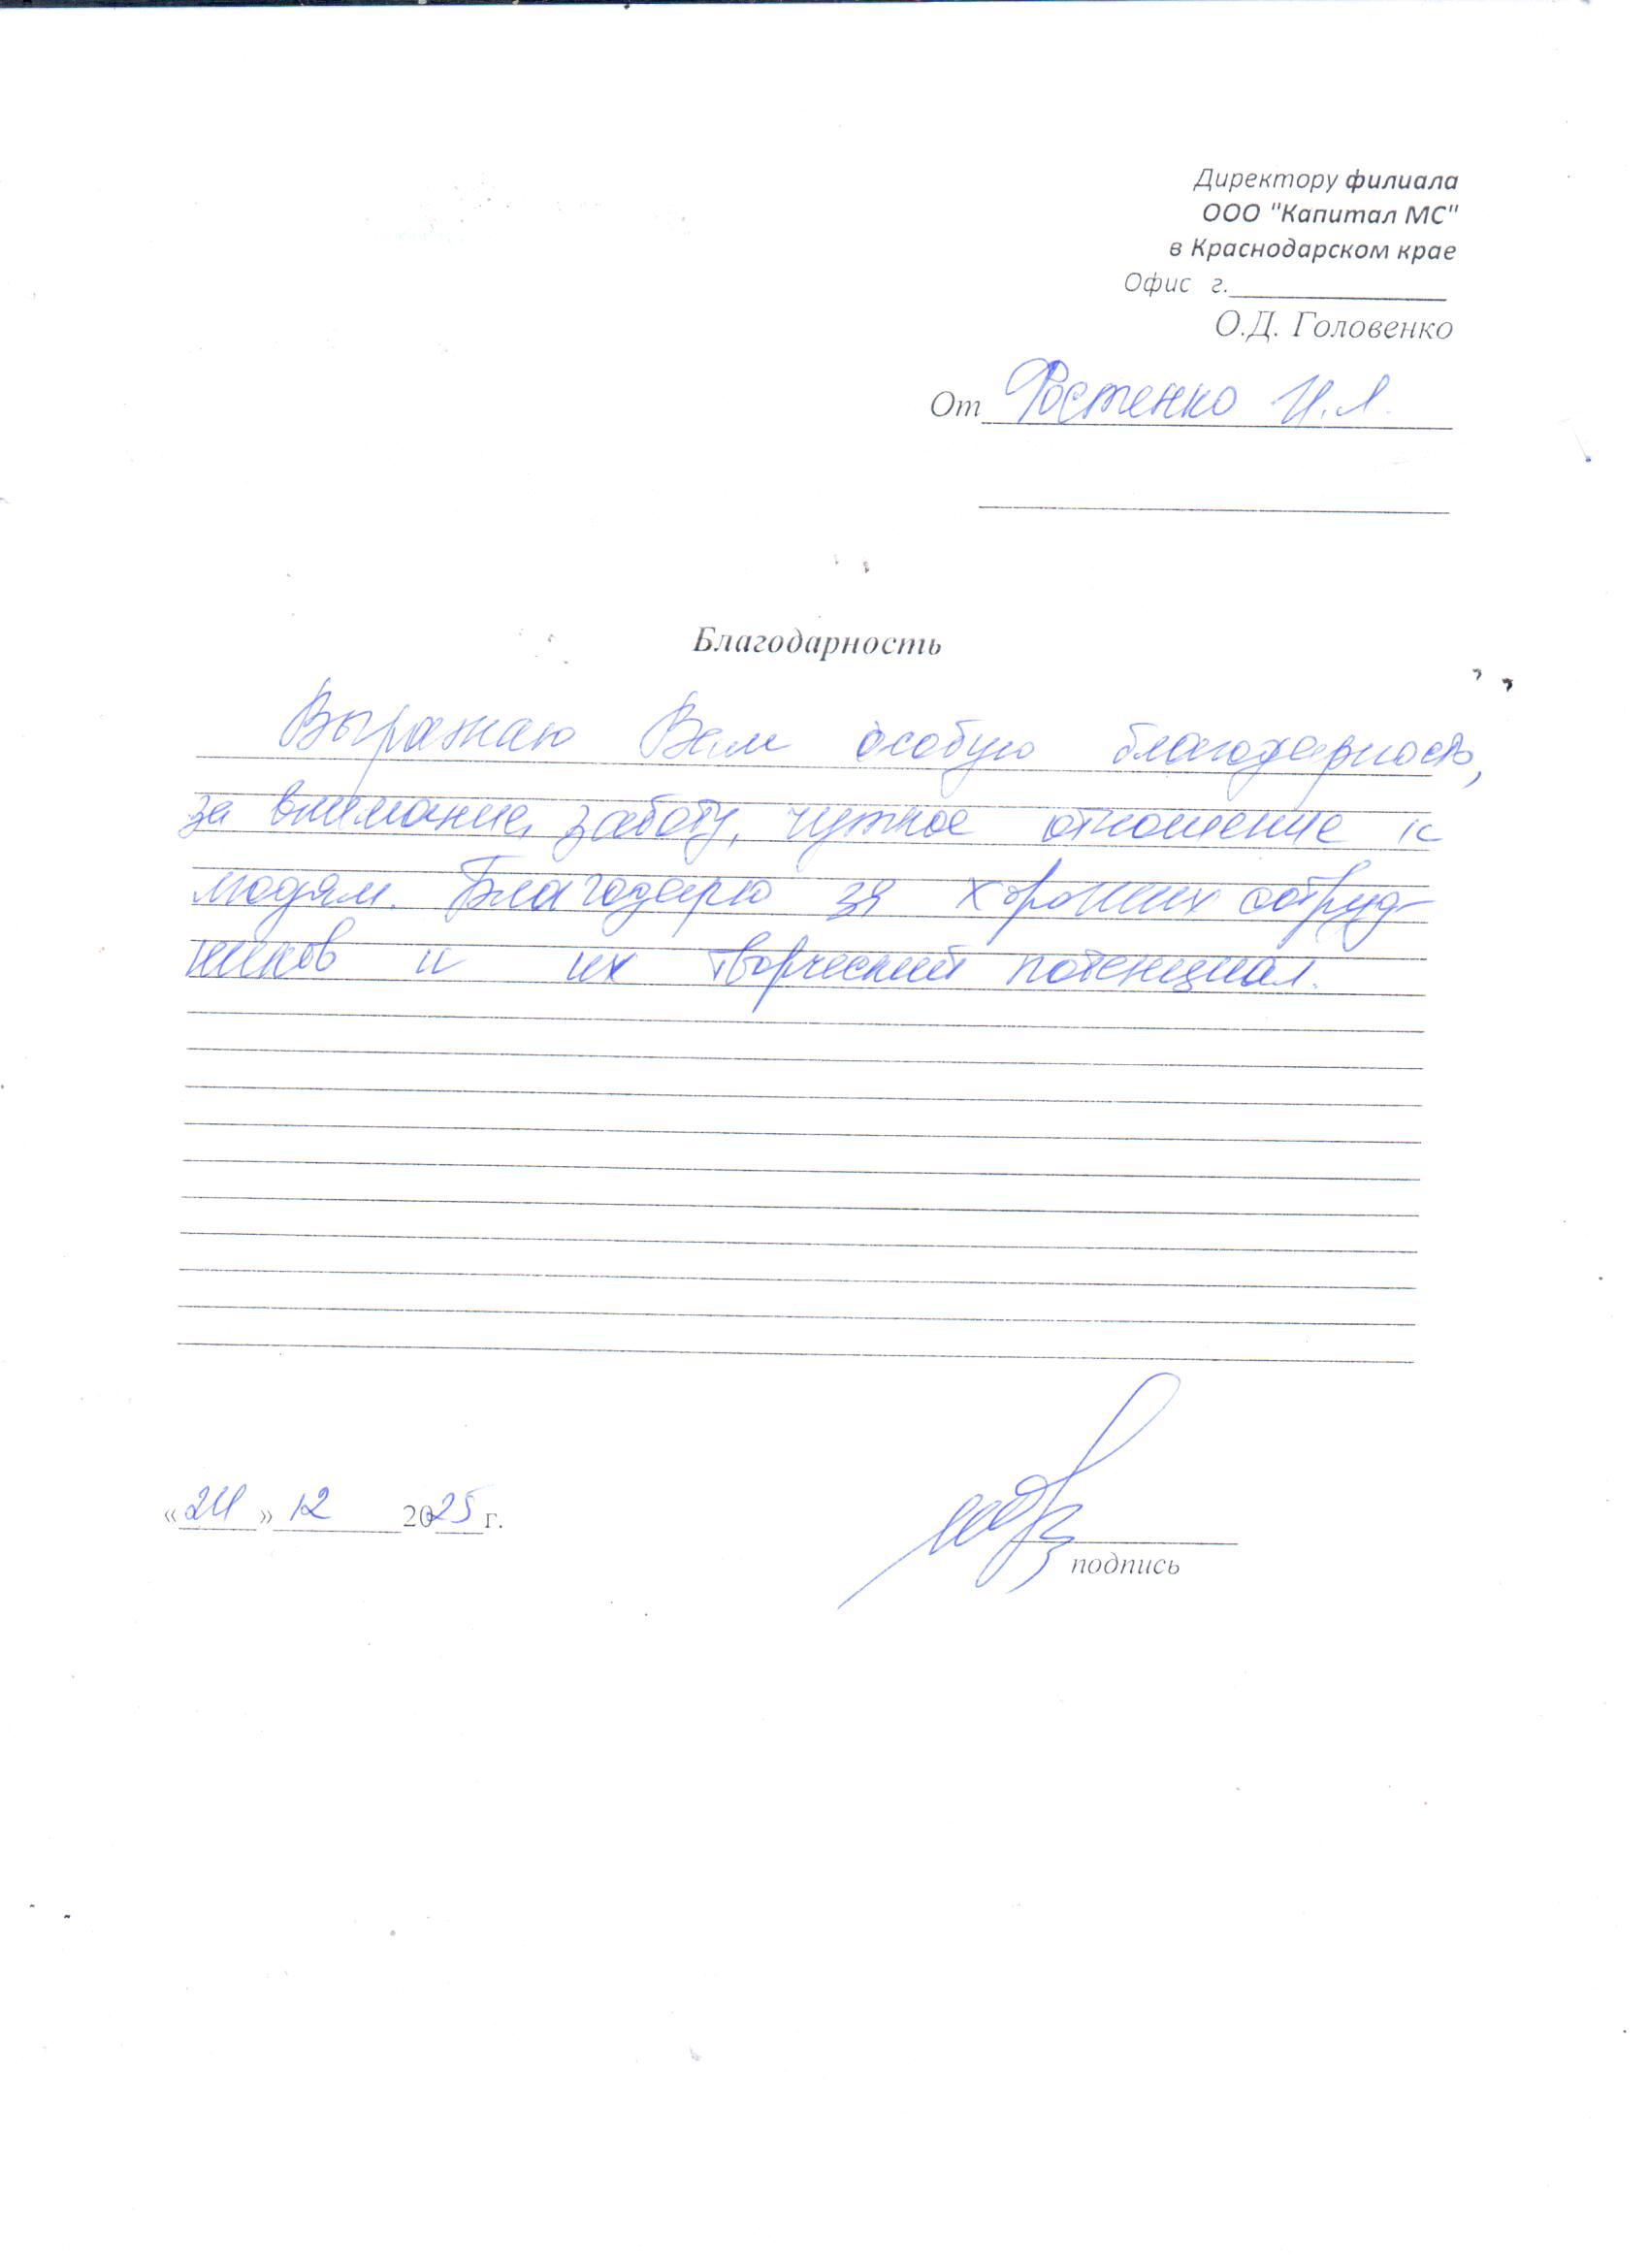 Директору филиала
ООО "Капитал МС"
в Краснодарском крае
Офис г.
О.Д. Головенко
От Фостенко И.Л.
Благодарность
Выражаю Вам особую благодарность,
за внимание, заботу, чуткое отношение к
людям. Благодарю за хороших сотруд-
ников и их творческий потенциал.
«24» 12 2025 г.
подпись